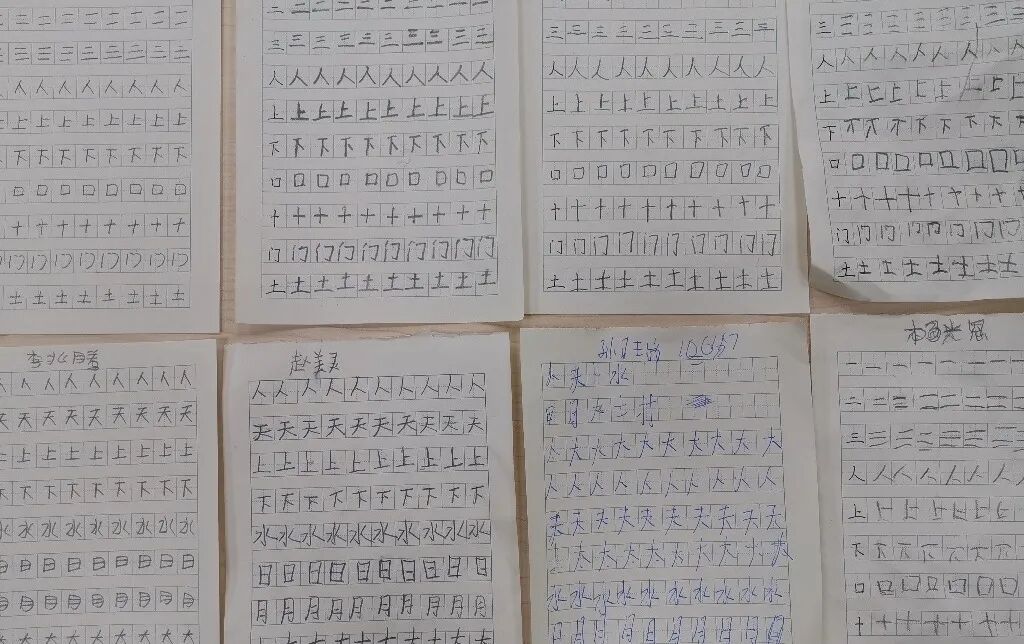 二 二 二 二 二 二 二 二
三 三 三 三 三 三 三 三
人 人 人 人 人 人 人 人
上 上 上 上 上 上 上 上
下 下 下 下 下 下 下 下
口 口 口 口 口 口 口 口
十 十 十 十 十 十 十 十
门 门 门 门 门 门 门 门
土 土 土 土 土 土 土 土
二 二 二 二 二 二 二 二 二 二
三 三 三 三 三 三 三 三 三 三
人 人 人 人 人 人 人 人 人 人
上 上 上 上 上 上 上 上 上 上
下 下 下 下 下 下 下 下 下 下
口 口 口 口 口 口 口 口 口 口
十 十 十 十 十 十 十 十 十 十
门 门 门 门 门 门 门 门 门 门
土 土 土 土 土 土 土 土 土 土
三 三 三 三 三 三 三 三 三 三
人 人 人 人 人 人 人 人 人 人
上 上 上 上 上 上 上 上 上 上
下 下 下 下 下 下 下 下 下 下
口 口 口 口 口 口 口 口 口 口
十 十 十 十 十 十 十 十 十 十
门 门 门 门 门 门 门 门 门 门
土 土 土 土 土 土 土 土 土 土
三 三 三 三 三 三 三 三 三
人 人 人 人 人 人 人 人 人
上 上 上 上 上 上 上 上 上
下 下 下 下 下 下 下 下 下
口 口 口 口 口 口 口 口 口
十 十 十 十 十 十 十 十 十
门 门 门 门 门 门 门 门
土 土 土 土 土 土 土 土
李兆胜
人 人 人 人 人 人 人 人 人
天 天 天 天 天 天 天 天 天
上 上 上 上 上 上 上 上 上
下 下 下 下 下 下 下 下 下
水 水 水 水 水 水 水 水 水
日 日 日 日 日 日 日 日 日
月 月 月 月 月 月 月 月 月
大 大 大 大 大 大 大 大
赵美灵
人 人 人 人 人 人 人 人 人 人
天 天 天 天 天 天 天 天 天 天
上 上 上 上 上 上 上 上 上 上
下 下 下 下 下 下 下 下 下 下
水 水 水 水 水 水 水 水 水 水
日 日 日 日 日 日 日 日 日 日
月 月 月 月 月 月 月 月 月 月
大 大 大 大 大 大 大 大 大 大
水
大 大 大 大 大 大 大 大 大
人 人 人 人 人 人 人 人 人 人
天 天 天 天 天 天 天 天 天 天
太 太 太 太 太 太 太 太 太
水 水 水 水 水 水 水 水 水 水
日 日 日 日 日 日 日 日 日 日
一 一 一 一 一 一 一
二 二 二 二 二 二 二
三 三 三 三 三 三 三
人 人 人 人 人 人 人
上 上 上 上 上 上
下 下 下 下 下 下 下
口 口 口 口 口 口 口
十 十 十 十 十 十 十